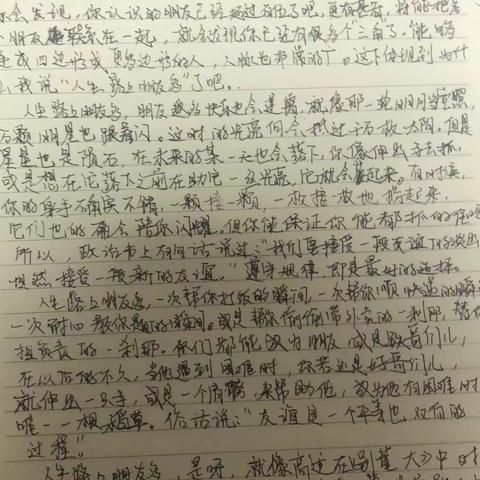 你会发现,你认识的朋友已经超过百位了吧,更有甚者,将能把着
人朋友联系在一起,就会发现你已经有很多个"三角"了。能够
连成四边形或更多边形的人,人脉也非常的广。这下体现到为什
么我说"人生路上朋友多"了吧。
人生路上朋友多,朋友越多快乐也会递增,就像那一轮明月当空照,
万颗明星也跟着闪。这时的光亮何会抵过千万枚太阳。但是
星星也是陨石,在未来的某一天也会落下,你像伸出手去抓,
或是想在它落下之前在助它一丝光亮,它就会飞起来。有时候,
你的身手确实不错,一颗接一颗,一枚接一枚地捞起来,
它们也的确会陪你闪耀。但你能保证你能都抓的住
所以,政治书上有句话说过:"我们要接受一段友谊的淡出
坦然接受一段新的友谊。"遵守规律,即是最好的选择。
人生路上朋友多,一次帮你打饭的瞬间,一次帮你顺快递的瞬
一次耐心教你题的瞬间。或是帮你偷偷带外卖的一刹那,替你
担负责的一刹那。你们都能成为朋友,或是好哥们儿,
在以后的不久,当他遇到困难时,你若还是好哥们儿,
就伸出一只手,或是一个肩膀,来帮助他,成为他有困难时
唯一一根稻草。俗话说:"友谊是一个平等也双向的
过程。"
人生路上朋友多,是呀,就像高适在《别董大》中